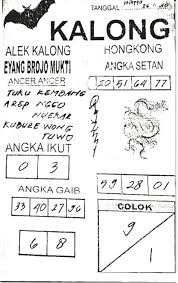 TANGGAL
KALONG
ALEK KALONG
HONGKONG
EYANG BROJO MUKTI
ANGKA SETAN
ANCER ANCER
20 51 64 77
TUKU KEMBANG
AREP NGGO
NYEKAR
KUBURE WONG
TUWO
ANGKA IKUT
0 3
ANGKA GAIB
59 28 01
33 40 27 96
COLOK
9
1
6 8